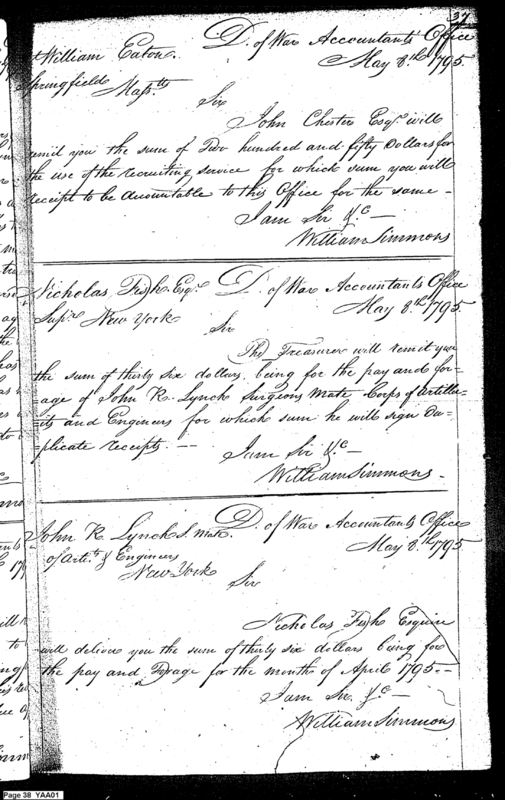 37
William Eaton. D. of War Accountants Office
Springfield Massts May 8.th 1795
Sir
John Chester Esqr. will
remit you the sum of Two hundred and fifty Dollars for
the use of the recruiting service for which sum you will
receipt to be Accountable to this Office for the same -
I am Sir &c -
William Simmons
Nicholas Fish Esqr. D. of War Accountants Office
Supr. New York May 8.th 1795
Sir
The Treasurer will remit you
the sum of thirty six dollars being for the pay and for-
age of John R. Lynch Surgeons Mate Corps of Artille-
rists and Engineers for which sum he will sign du-
plicate receipts. -
I am Sir &c -
William Simmons.
John R. Lynch S. Mate. D. of War Accountants Office
of Arts. & Engineers May 8.th 1795
New York
Sir
Nicholas Fish Esquire
will deliver you the sum of thirty six dollars being for
the pay and Forage for the months of April 1795. -
I am Sir &c -
William Simmons
Page 38 YAA01